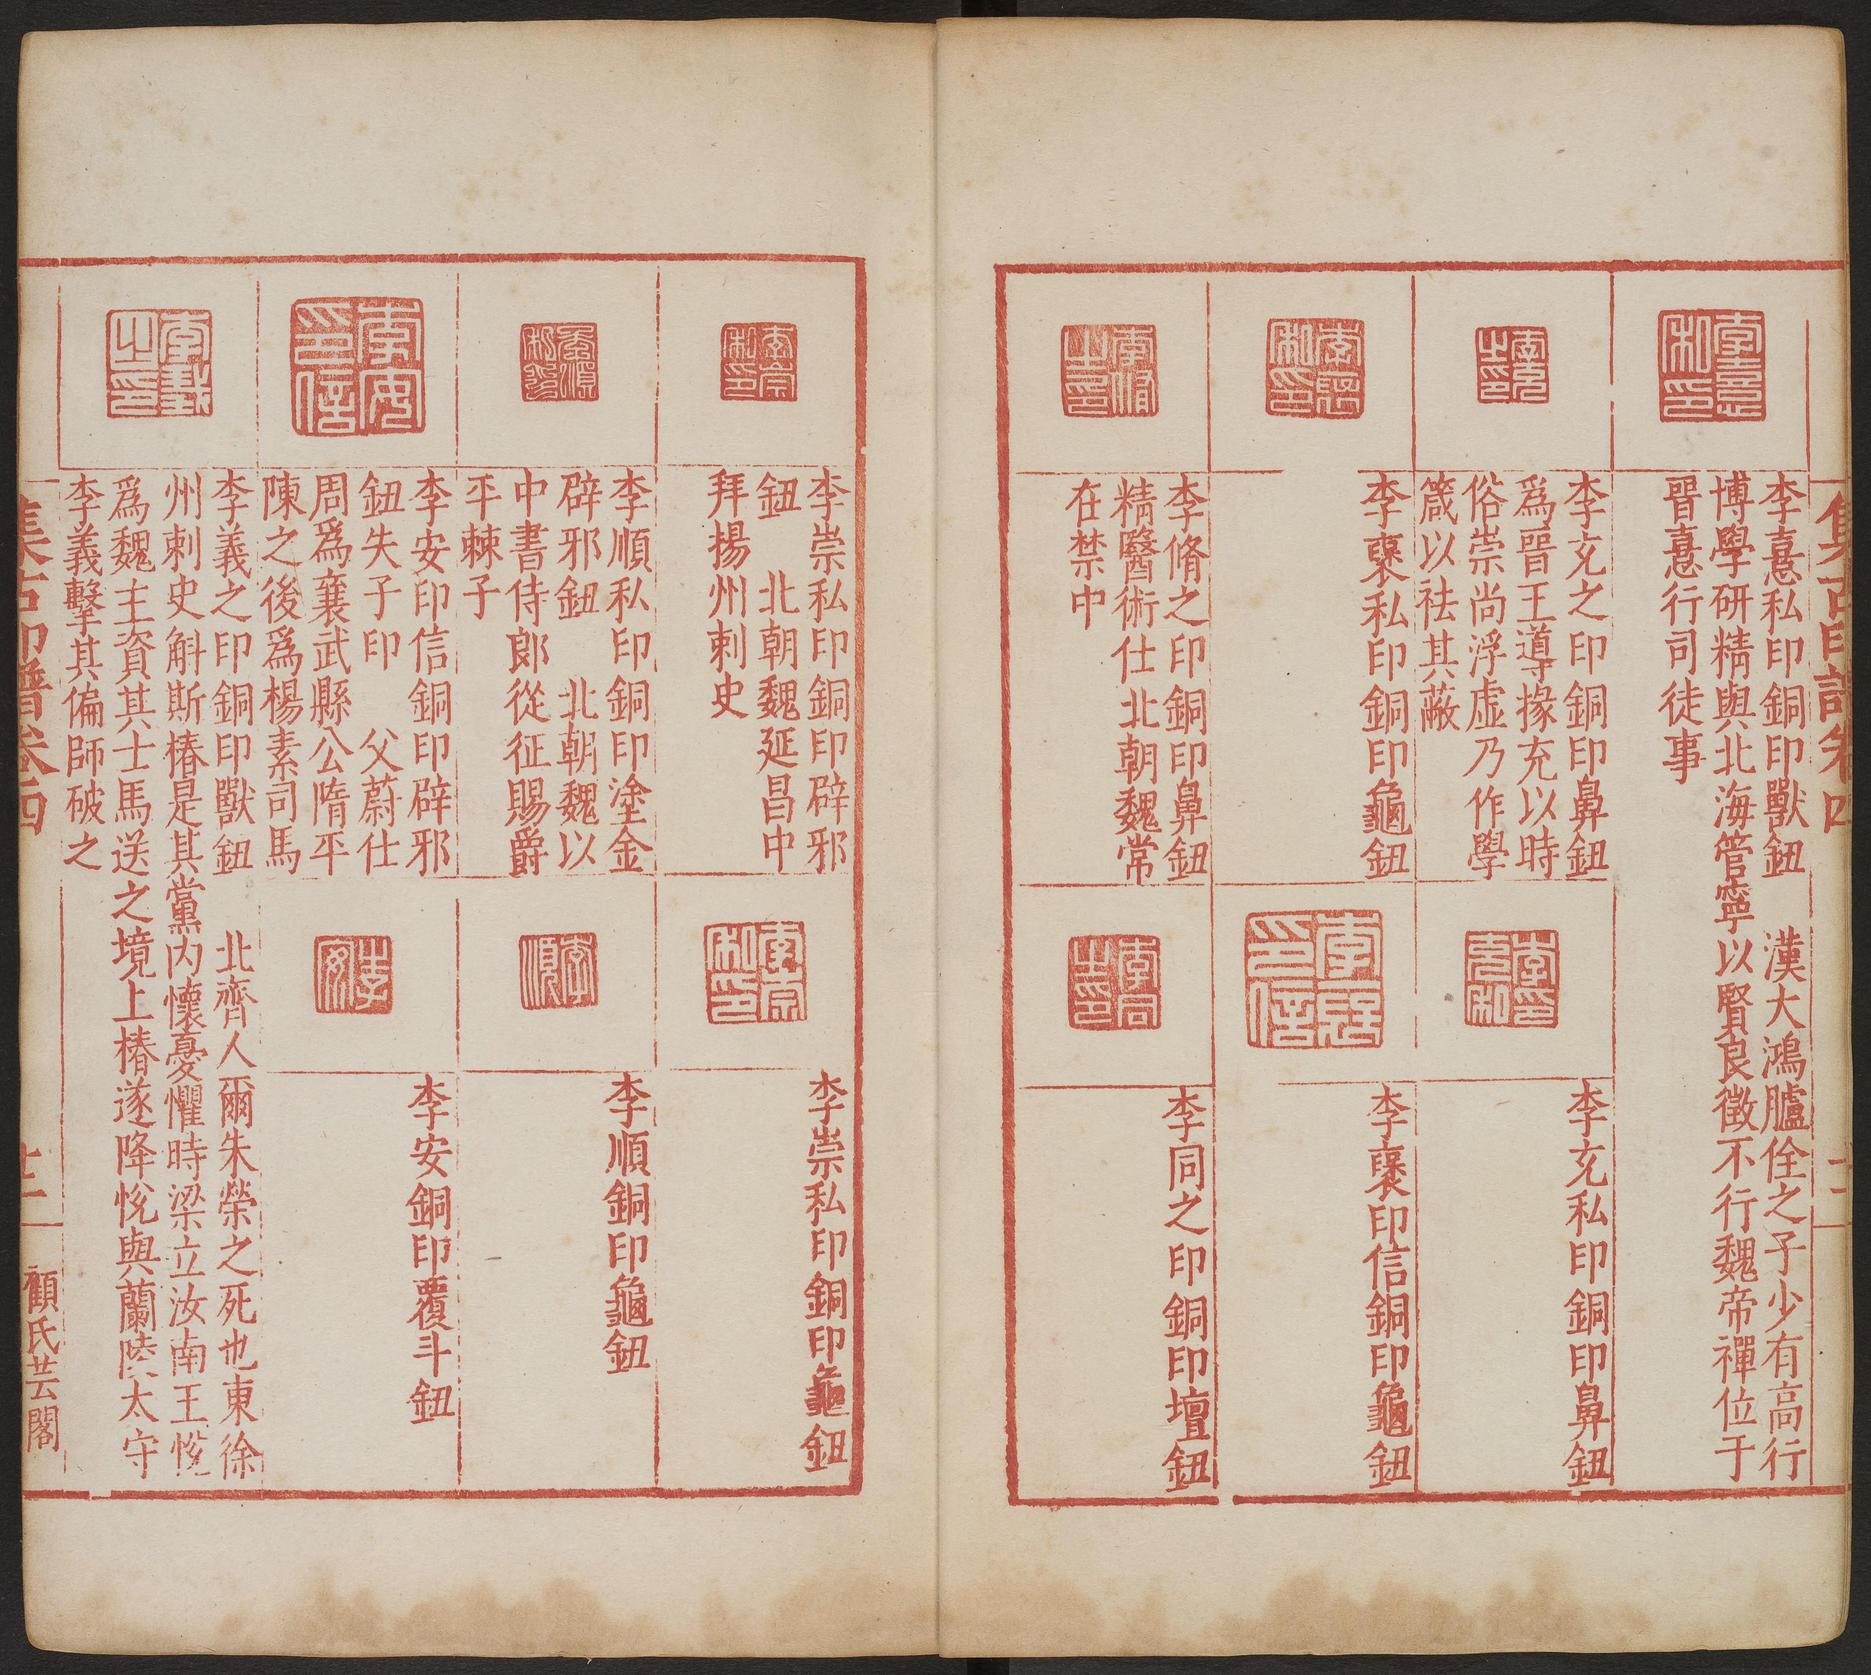 集古印譜卷四
李憙私印銅印獸鈕　漢大鴻臚佺之子少有高行
博學研精與北海管寧以賢良徵不行魏帝禪位于
晉憙行司徒事
李充之印銅印鼻鈕
爲晉王導掾充以時
俗崇尚浮虛乃作學
箴以祛其蔽
李充私印銅印鼻鈕
李褱私印銅印龜鈕
李褱印信銅印龜鈕
李脩之印銅印鼻鈕
精醫術仕北朝魏常
在禁中
李同之印銅印壇鈕
李崇私印銅印辟邪
鈕　北朝魏延昌中
拜揚州刺史
李崇私印銅印龜鈕
李順私印銅印塗金
辟邪鈕　北朝魏以
中書侍郎從征賜爵
平棘子
李順銅印龜鈕
李安印信銅印辟邪
鈕失子印　父蔚仕
周爲襄武縣公隋平
陳之後爲楊素司馬
李安銅印覆斗鈕
李義之印銅印獸鈕　北齊人爾朱榮之死也東徐
州刺史斛斯椿是其黨内懷憂懼時梁立汝南王悅
爲魏主資其士馬送之境上椿遂降悅與蘭陸太守
李義擊其偏師破之
集古印譜卷四
顧氏芸閣